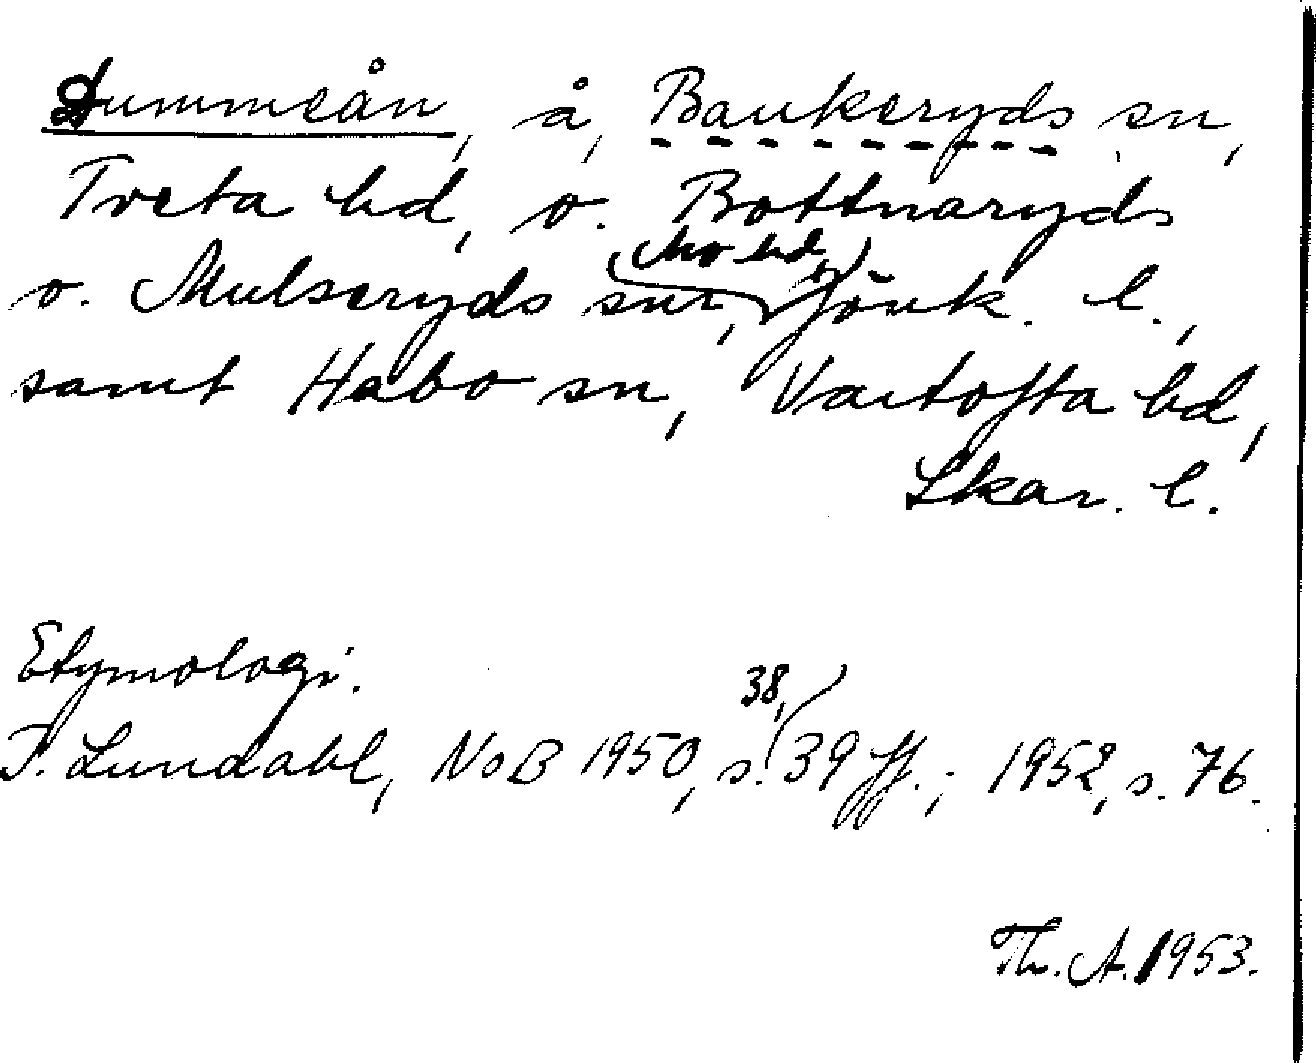 Dummeån, å, Bankeryds sn,
Tveta hd, o. Bottnaryds
o. Mulseryds snr, Mo hd, Jönk. l.,
samt Habo sn, Vartofta hd,
Skar. l.
Etymologi.
I. Lundahl, NoB 1950, s. 38, 39 ff.; 1952, s. 76.
Th. A. 1953.